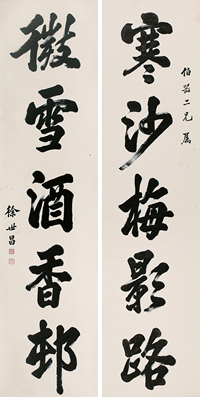 寒沙梅影路
伯苕二兄属
微雪酒香邨
徐世昌